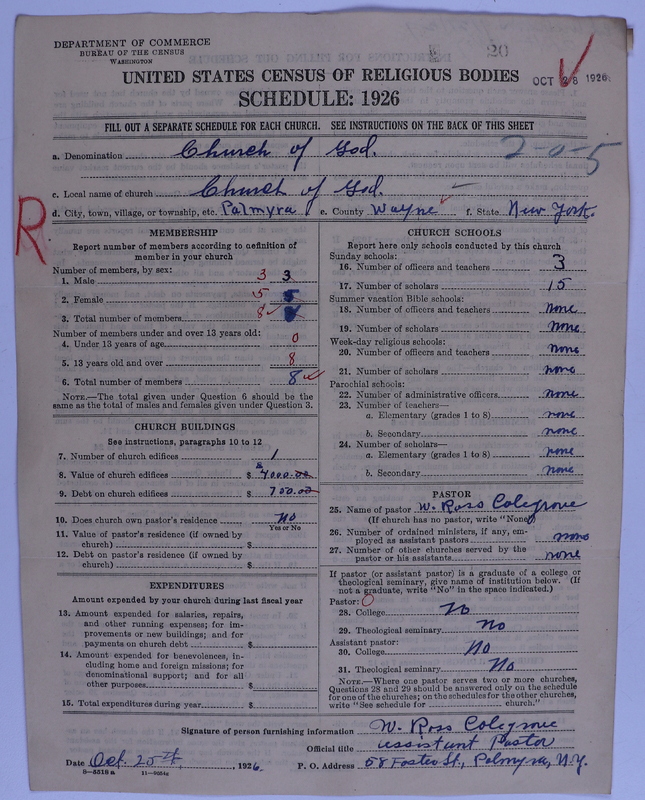 DEPARTMENT OF COMMERCE
BUREAU OF THE CENSUS
WASHINGTON
20
OCT 28 1926
UNITED STATES CENSUS OF RELIGIOUS BODIES
SCHEDULE: 1926
FILL OUT A SEPARATE SCHEDULE FOR EACH CHURCH. SEE INSTRUCTIONS ON THE BACK OF THIS SHEET
a. Denomination Church of God.
2-0-5
c. Local name of church Church of God.
d. City, town, village, or township, etc. Palmyra e. County Wayne f. State New York.
R
MEMBERSHIP
Report number of members according to definition of
member in your church
Number of members, by sex:
1. Male 3 3
2. Female 5 5
3. Total number of members 8
Number of members under and over 13 years old:
4. Under 13 years of age 0
5. 13 years old and over 8
6. Total number of members 8
NOTE.—The total given under Question 6 should be
same as the total of males and females given under Question 3.
CHURCH BUILDINGS
See instructions, paragraphs 10 to 12
7. Number of church edifices 1
8. Value of church edifices $ 4000.00
9. Debt on church edifices $ 700.00
10. Does church own pastor's residence No
Yes or No
11. Value of pastor's residence (if owned by
church) $
12. Debt on pastor's residence (if owned by
church) $
EXPENDITURES
Amount expended by your church during last fiscal year
13. Amount expended for salaries, repairs,
and other running expenses; for im-
provements or new buildings; and for
payments on church debt $
14. Amount expended for benevolences, in-
cluding home and foreign missions; for
denominational support; and for all
other purposes $
15. Total expenditures during year $
CHURCH SCHOOLS
Report here only schools conducted by this church
Sunday schools:
16. Number of officers and teachers 3
17. Number of scholars 15
Summer vacation Bible schools:
18. Number of officers and teachers none
19. Number of scholars none
Week-day religious schools:
20. Number of officers and teachers none
21. Number of scholars none
Parochial schools:
22. Number of administrative officers none
23. Number of teachers—
a. Elementary (grades 1 to 8) none
b. Secondary none
24. Number of scholars—
a. Elementary (grades 1 to 8) none
b. Secondary none
PASTOR
25. Name of pastor W. Ross Colegrove
(If church has no pastor, write "None")
26. Number of ordained ministers, if any, em-
ployed as assistant pastors none
27. Number of other churches served by the
pastor or his assistants none
If pastor (or assistant pastor) is a graduate of a college or
theological seminary, give name of institution below. (If
not a graduate, write "No" in the space indicated.)
Pastor: 0
28. College No
29. Theological seminary No
Assistant pastor:
30. College No
31. Theological seminary No
NOTE.—Where one pastor serves two or more churches,
Questions 28 and 29 should be answered only on the schedule
for one of the churches; on the schedules for the other churches,
write "See schedule for church."
Signature of person furnishing information W. Ross Colegrove
Official title assistant Pastor
Date Oct. 25th, 1926. P. O. Address 58 Foster St., Palmyra, N.Y.
8—5518a 11—9254